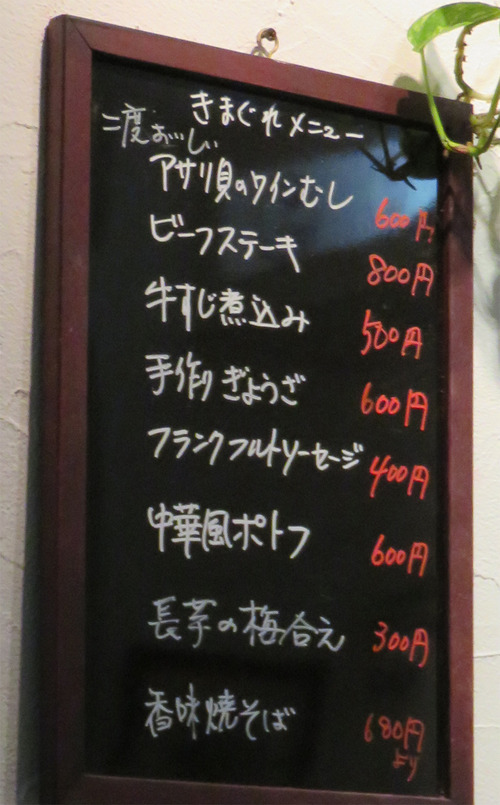 きまぐれメニュー
二度おいしい
アサリ貝のワインむし 600円
ビーフステーキ 800円
牛すじ煮込み 500円
手作りぎょうざ 600円
フランクフルトソーセージ 400円
中華風ポトフ 600円
長芋の梅合え 300円
香味焼そば 680円
より